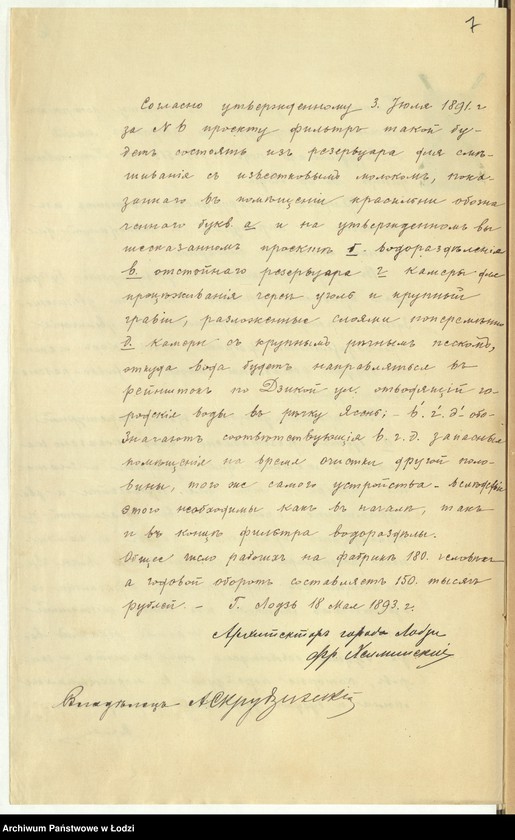 7
Согласно утвержденному 3. Июля 1891. г
за № 6 проекту фильтръ такой бу-
детъ состоять изъ резервуара для смѣ-
шиванія съ известковымъ молокомъ, пока-
заннаго въ помѣщеніи красильни обозна
ченнаго букв. а и на утвержденномъ вы
шесказанномъ проектѣ б. водораздѣленія
в. отстойнаго резервуара г камеры для
процѣживанія черезъ уголь и крупный
гравій, разложенные слоями поперемѣнно
д. камеры съ крупнымъ рѣчнымъ пескомъ,
откуда вода будетъ направляться въ
рейнштокъ по Дзикой ул. отводящій го-
родскія воды въ рѣчку Ясень; – в'. г'. д' обо-
значаютъ соотвѣтствующія в. г. д. запасныя
помѣщенія на время очистки другой поло-
вины, того же самаго устройства. –
этого необходимы какъ въ началѣ, такъ
и въ концѣ фильтра водораздѣлы.
Общее число рабочихъ на фабрикѣ 180. человѣкъ
а годовой оборотъ составляетъ 150. тысячъ
рублей. – Г. Лодзь 18 Мая 1893. г.
Архитекторъ города Лодзи
Фр Хелминскій
Владѣлецъ
Archiwum Państwowe w Łodzi